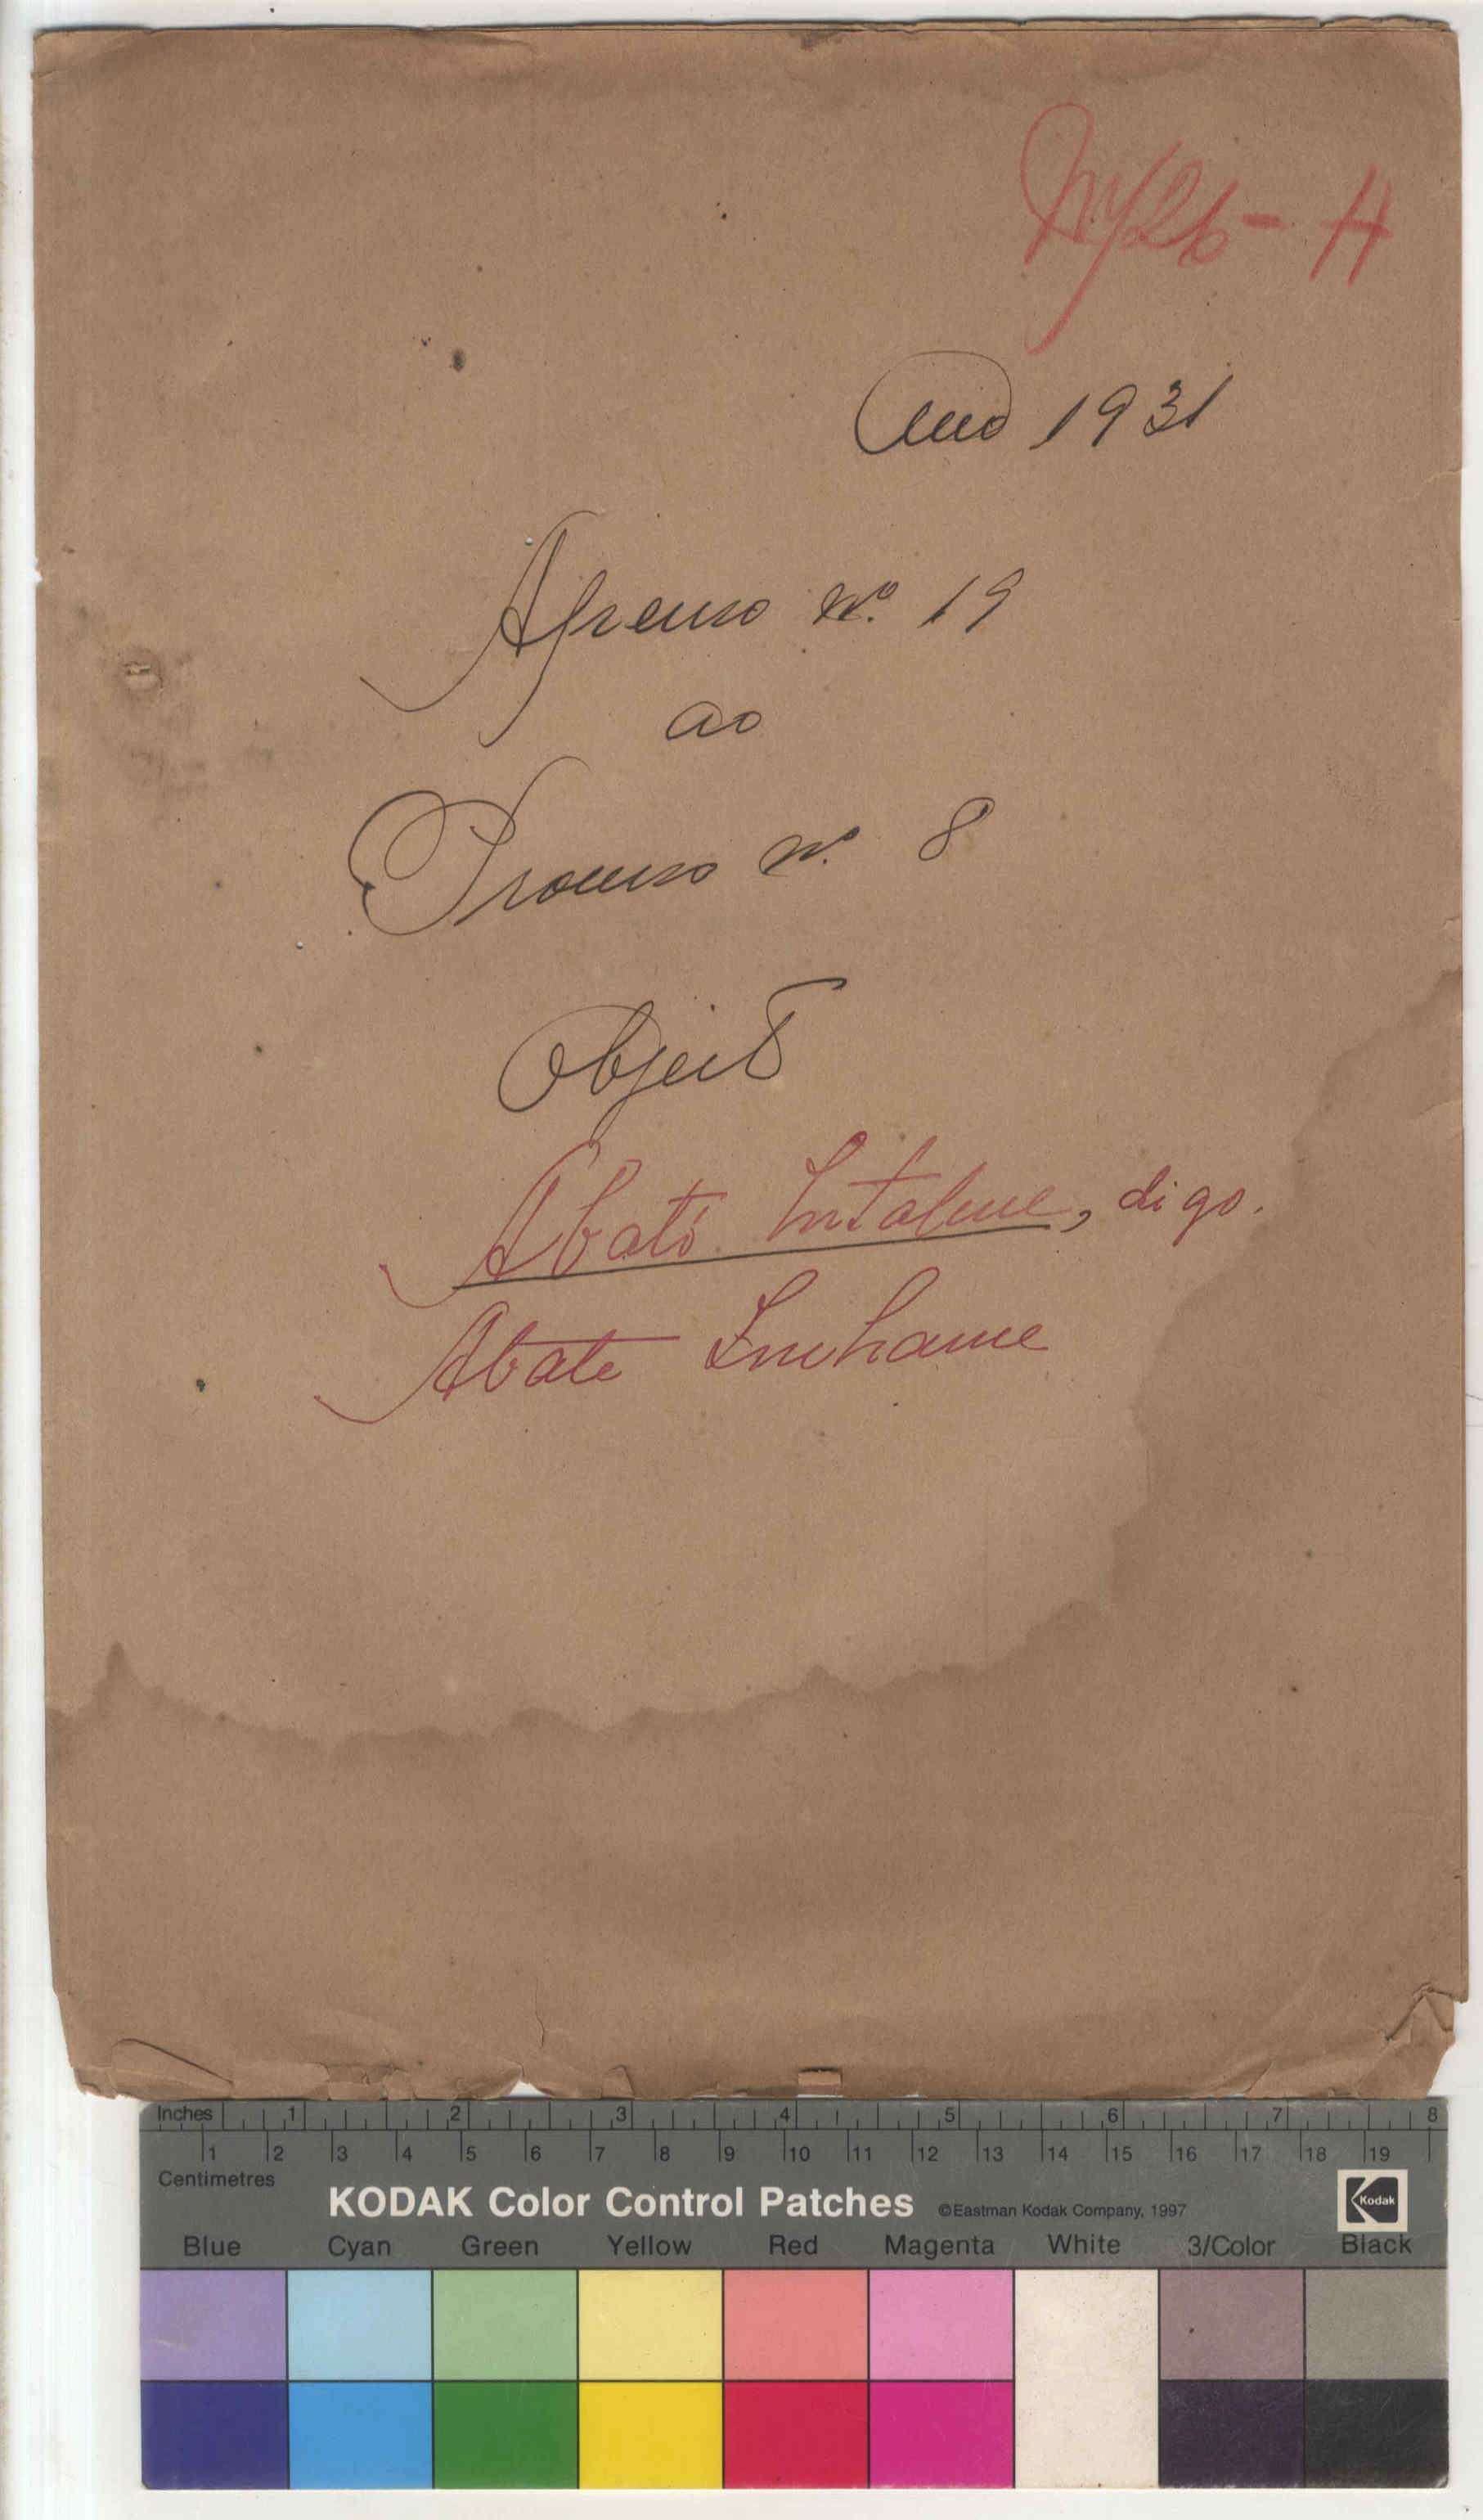 Anno 1931
Apenso nº. 19
ao
Processo nº. 8
Objecto
digo.
Abate
Inches 1 2 3 4 5 6 7 8
1 2 3 4 5 6 7 8 9 10 11 12 13 14 15 16 17 18 19
Centimetres
KODAK Color Control Patches ©Eastman Kodak Company, 1997 Kodak
Blue Cyan Green Yellow Red Magenta White 3/Color Black